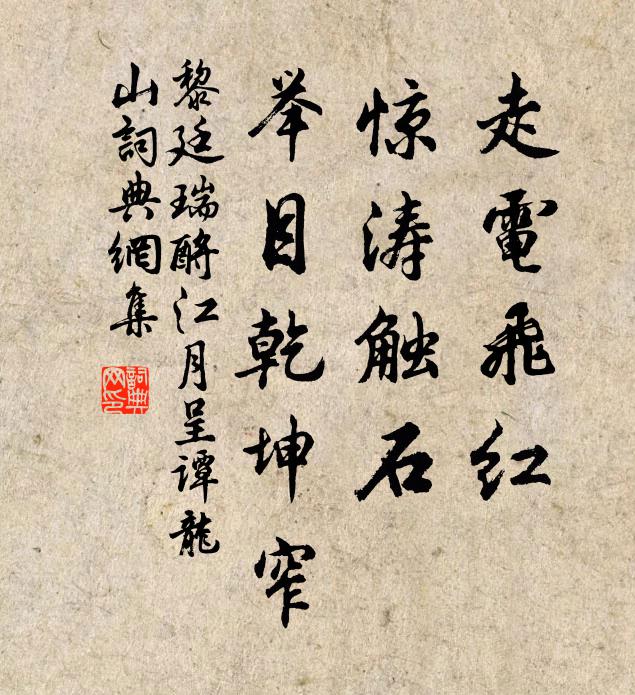 走電飛红
惊涛触石
举目乾坤窄
黎廷瑞酹江月呈谭龍
山詞典網集
詞典网印